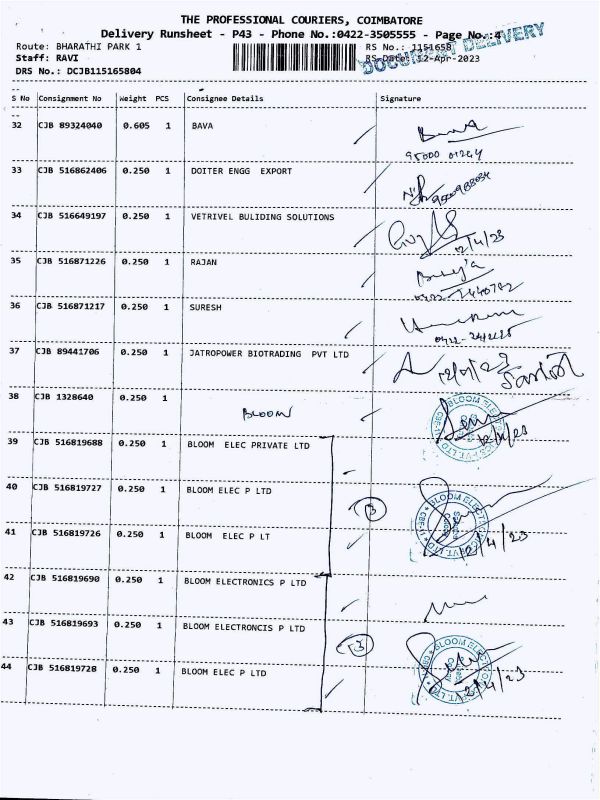 THE PROFESSIONAL COURIERS, COIMBATORE
Delivery Runsheet - P43 - Phone No.:0422-3505555 - Page No.:4
Route: BHARATHI PARK 1 RS No.: 1151658
Staff: RAVI RS Date: 12-Apr-2023
DOCUMENT DELIVERY
DRS No.: DCJB115165804
S No Consignment No Weight PCS Consignee Details Signature
32 CJB 89324040 0.605 1 BAVA
95000 01244
33 CJB 516862406 0.250 1 DOITER ENGG EXPORT
34 CJB 516649197 0.250 1 VETRIVEL BULIDING SOLUTIONS
12/4/23
35 CJB 516871226 0.250 1 RAJAN
36 CJB 516871217 0.250 1 SURESH
37 CJB 89441706 0.250 1 JATROPOWER BIOTRADING PVT LTD
38 CJB 1328640 0.250 1 BLOOM
39 CJB 516819688 0.250 1 BLOOM ELEC PRIVATE LTD
40 CJB 516819727 0.250 1 BLOOM ELEC P LTD
3
41 CJB 516819726 0.250 1 BLOOM ELEC P LT
12/4/23
42 CJB 516819690 0.250 1 BLOOM ELECTRONICS P LTD
43 CJB 516819693 0.250 1 BLOOM ELECTRONCIS P LTD
3
44 CJB 516819728 0.250 1 BLOOM ELEC P LTD
12/4/23